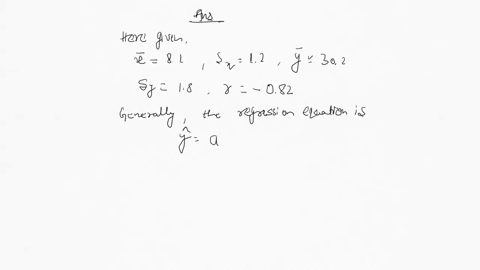 Ans
Here given,
x̄ = 82, Sx = 1.2, ȳ = 30.2
Sy = 1.8, r = -0.82
Generally, the regression equation is
ŷ = a